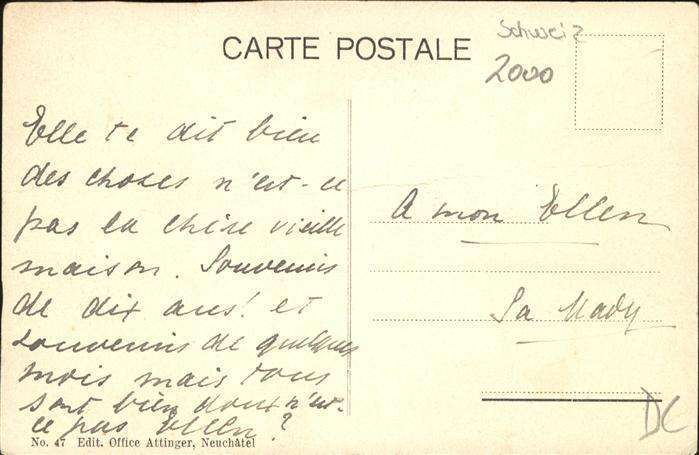 CARTE POSTALE
Schweiz
2000
Elle te dit bien
des choses n'est-ce
pas la chère vieille
maison. Souvenirs
de dix ans! et
souvenirs de quelques
mois mais tous
sont bien doux n'est-
ce pas Ellen?
A mon Ellen
Sa Mady
DC
No. 47 Edit. Office Attinger, Neuchâtel